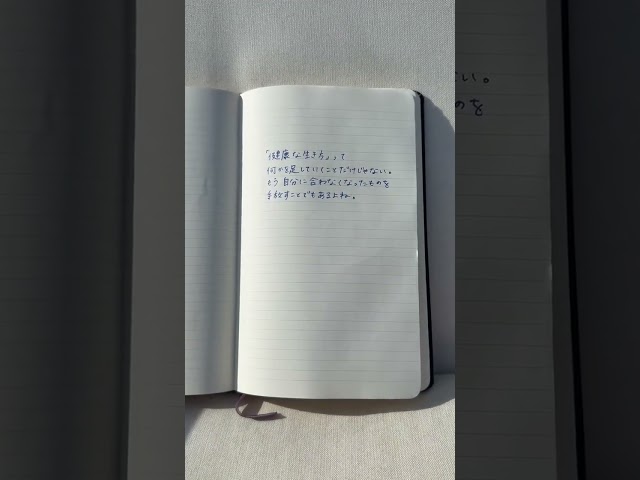 「健康な生き方」って
何かを足していくことだけじゃない。
もう自分に合わなくなったものを
手放すことでもあるよね。
い。
のを